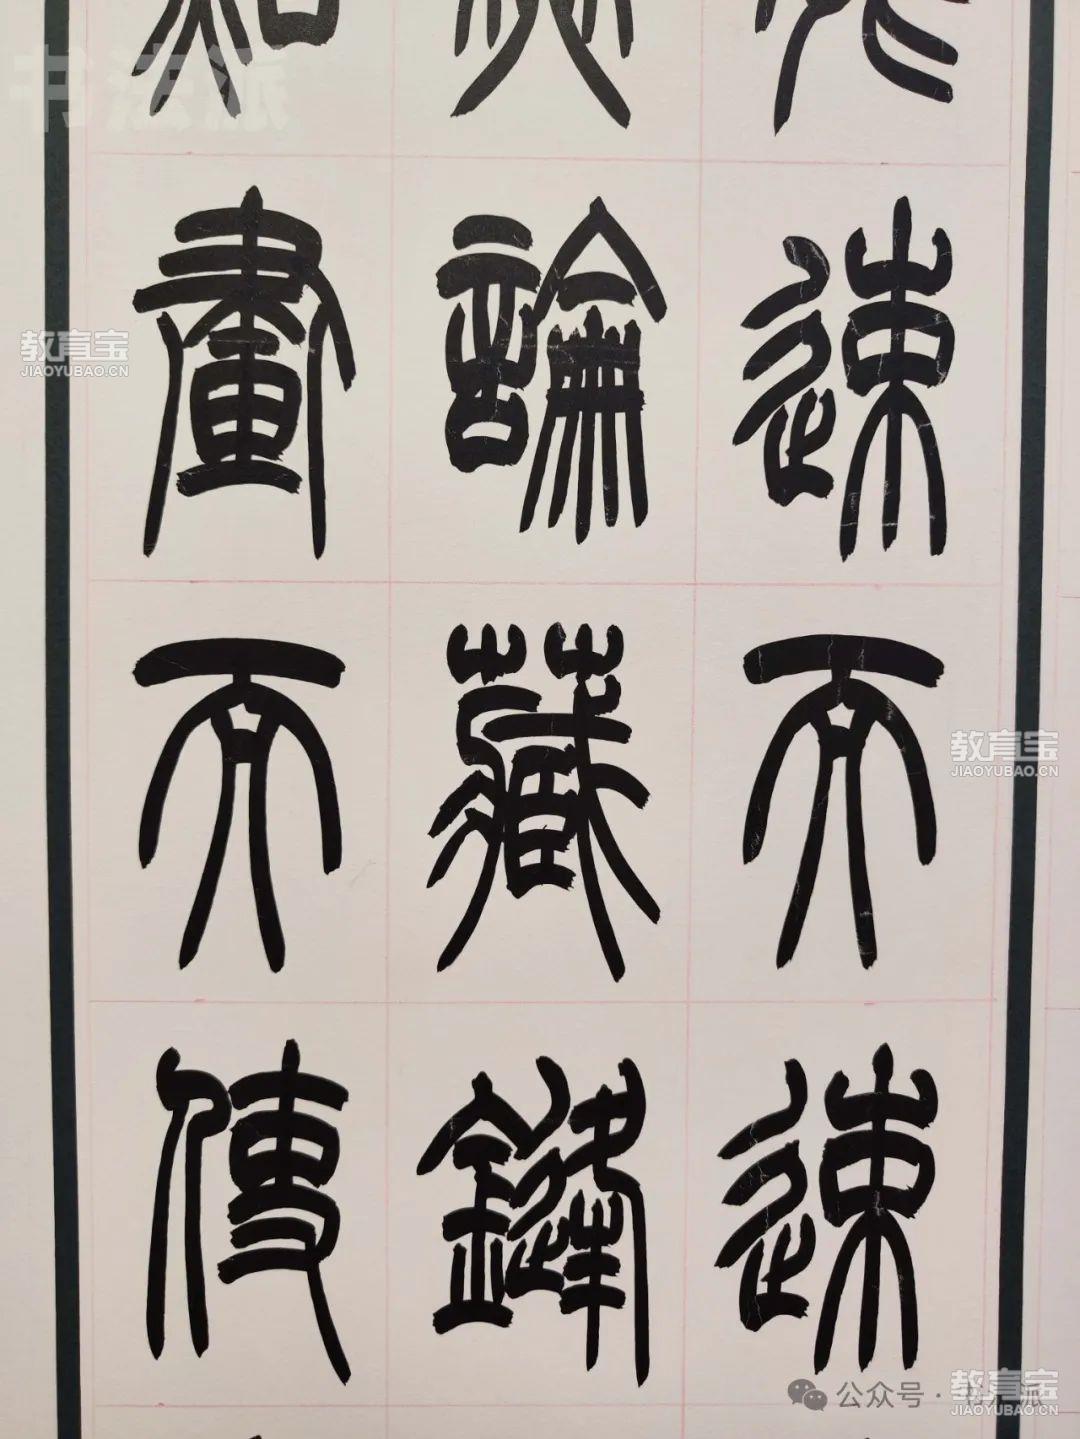 速不速
論藏鏠
畫不傳
教育宝
JIAOYUBAO.CN
教育宝
JIAOYUBAO.CN
教育宝
JIAOYUBAO.CN
公众号 · 书法派